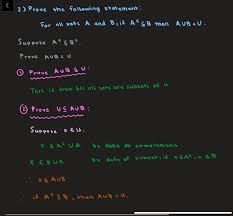 2) Prove the following statement:
For all sets A and B, if Aᶜ ⊆ B then A∪B = U.
Suppose Aᶜ ⊆ B
Prove A∪B = U
① Prove A∪B ⊆ U:
This is true b/c all sets are subsets of U
② Prove U ⊆ A∪B:
Suppose x ∈ U.
x ∈ Aᶜ ∪ A by defn of complement
x ∈ B∪A by defn of subset, if x ∈ Aᶜ, x ∈ B
∴ x ∈ A∪B
∴ if Aᶜ ⊆ B, then A∪B = U.